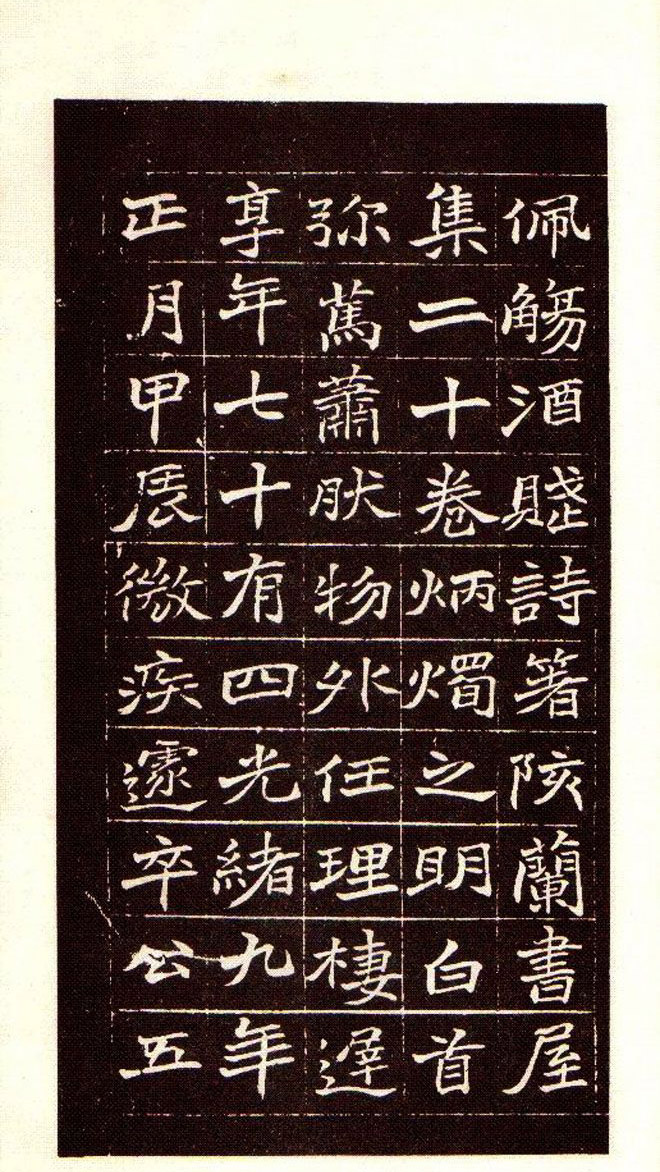 佩觴酒賤詩箸陔蘭書屋
集二十卷炳燭之明白首
弥蔿蕭肰物外任理棲遟
享年七十有四光緒九年
正月甲辰微疾遽卒公五